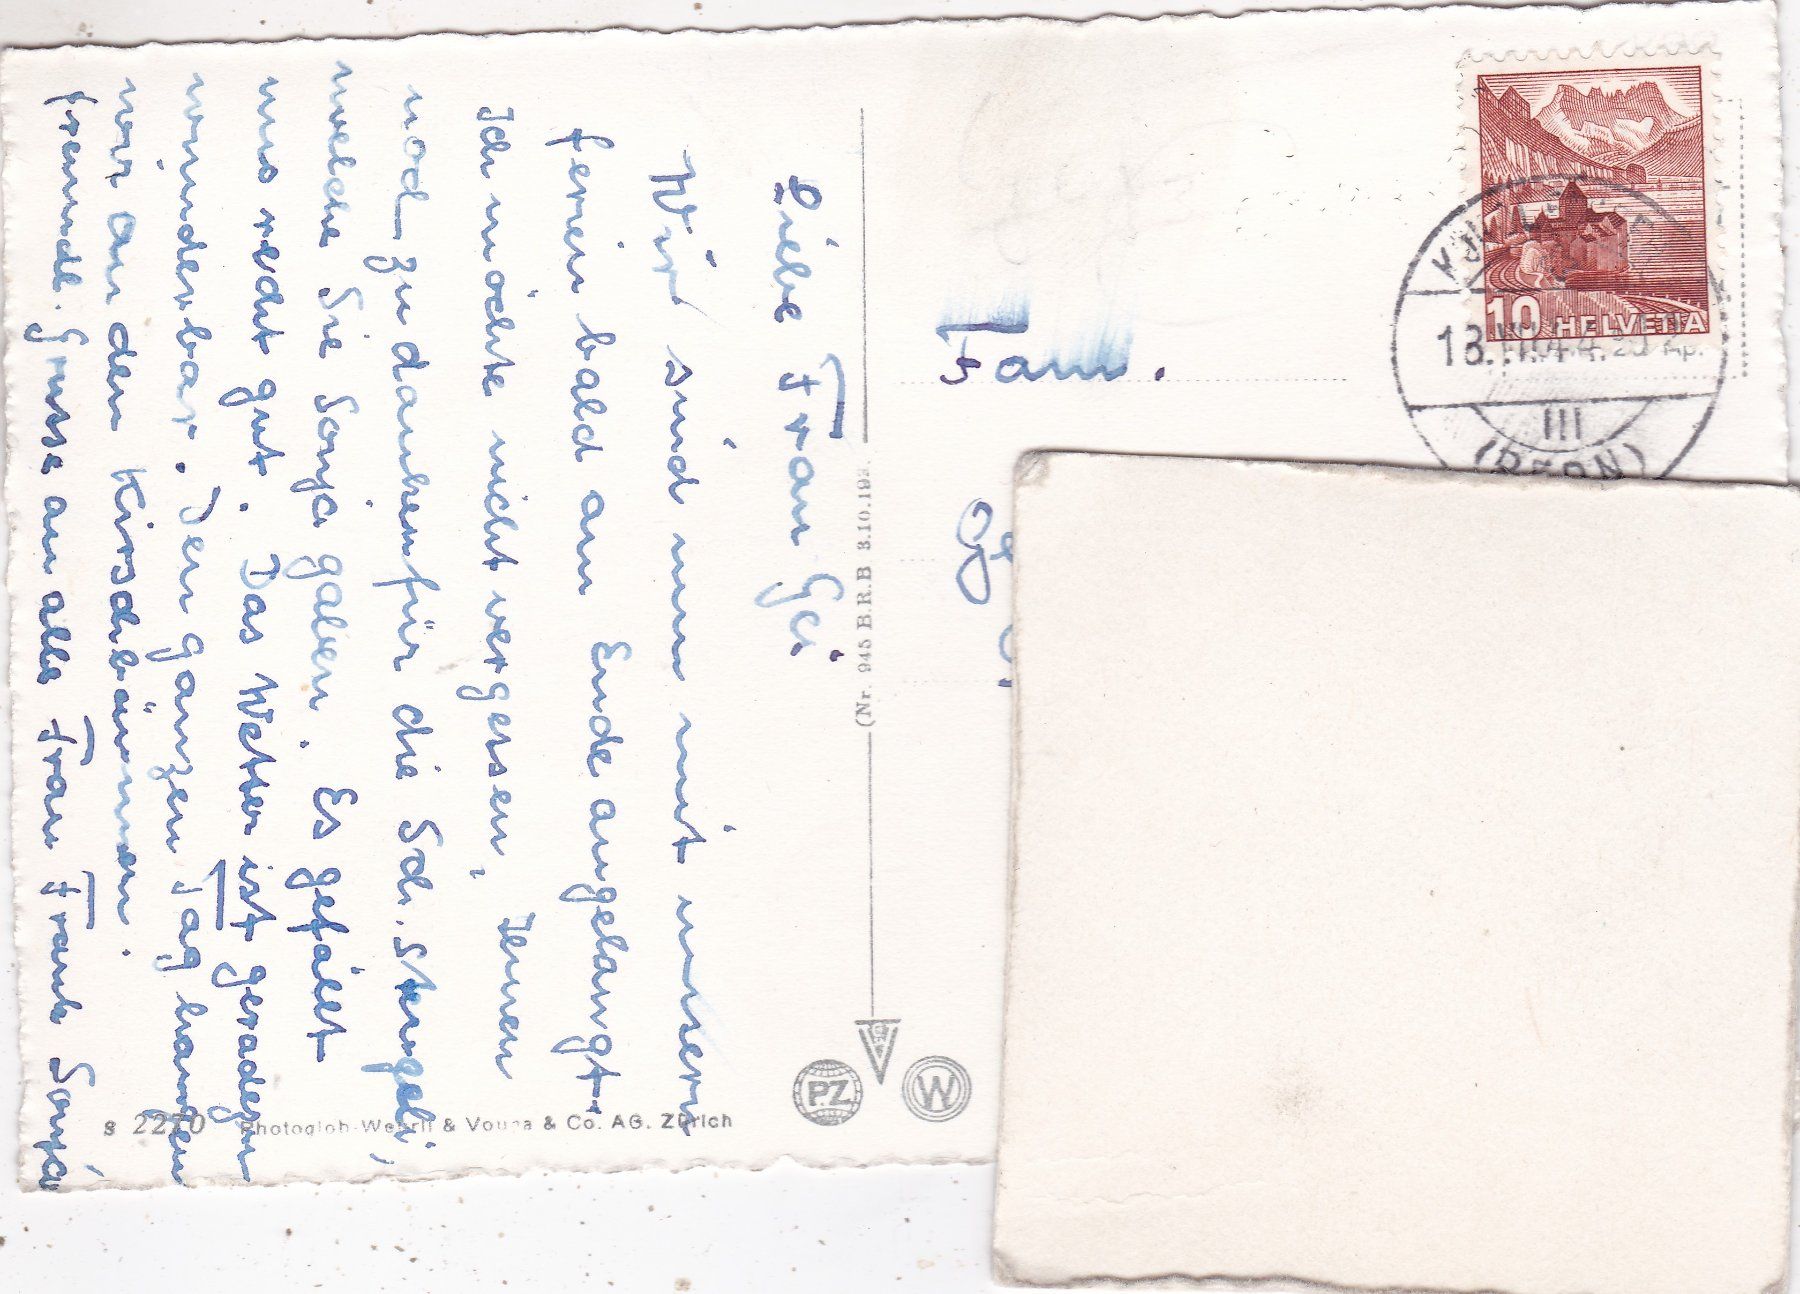 Liebe Frau Gei
Wir sind nun mit unsern
ferien bald am Ende angelangt.
Ich möchte nicht vergessen, Ihnen
noch zu danken für die Sch. Stengeli,
welche Sie Sonja gaben. Es gefällt
uns recht gut. Das Wetter ist geradezu
wunderbar. Den ganzen Tag hangen
wir an den Kirschbäumen.
freundl. Grüsse an alle Frau Frank Sonja
Fam.
Ge
10 HELVETIA
13.VII.44.20
III
(BERN)
(Nr. 945 B.R.B 3.10.193.
PZ
W
S 2270 Photoglob-Wehrli & Vouga & Co. AG. Zürich